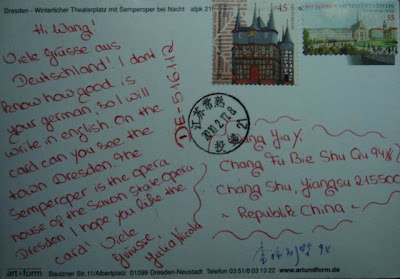 Dresden - Winterlicher Theaterplatz mit Semperoper bei Nacht
Hi, Wang!
Viele Grüsse aus
Deutschland! I don't
know how good is
your german, so I will
write in english. On the
card can you see the
town Dresden. The
semperoper is the opera
house of the Saxon State Opera
Dresden. I hope you like the
card! Viele
Grüsse,
Julia Nicola
DE-516112
45
55
江苏常熟
Chang Fu Bie Shu Qu
Chang Shu, Jiangsu 215500
~ Republik China ~
art+form
Bautzner Str.11/Albertplatz 01099 Dresden-Neustadt Telefon 03 51/8 03 13 22 www.artundform.de